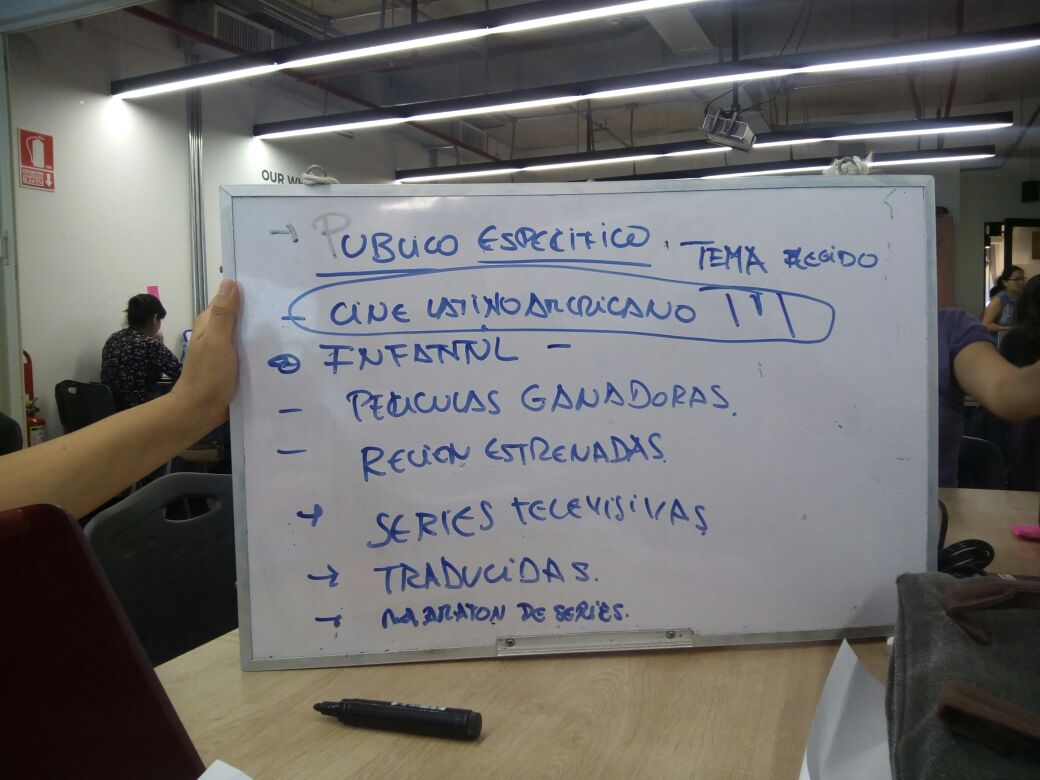 EXTINTOR
OUR W
→ PUBLICO ESPECIFICO.
TEMA
- CINE LATINOAMERICANO
INFANTIL -
- PELICULAS GANADORAS.
- RECIEN ESTRENADAS
→ SERIES TELEVISIVAS
→ TRADUCIDAS.
→ MARATON DE SERIES.